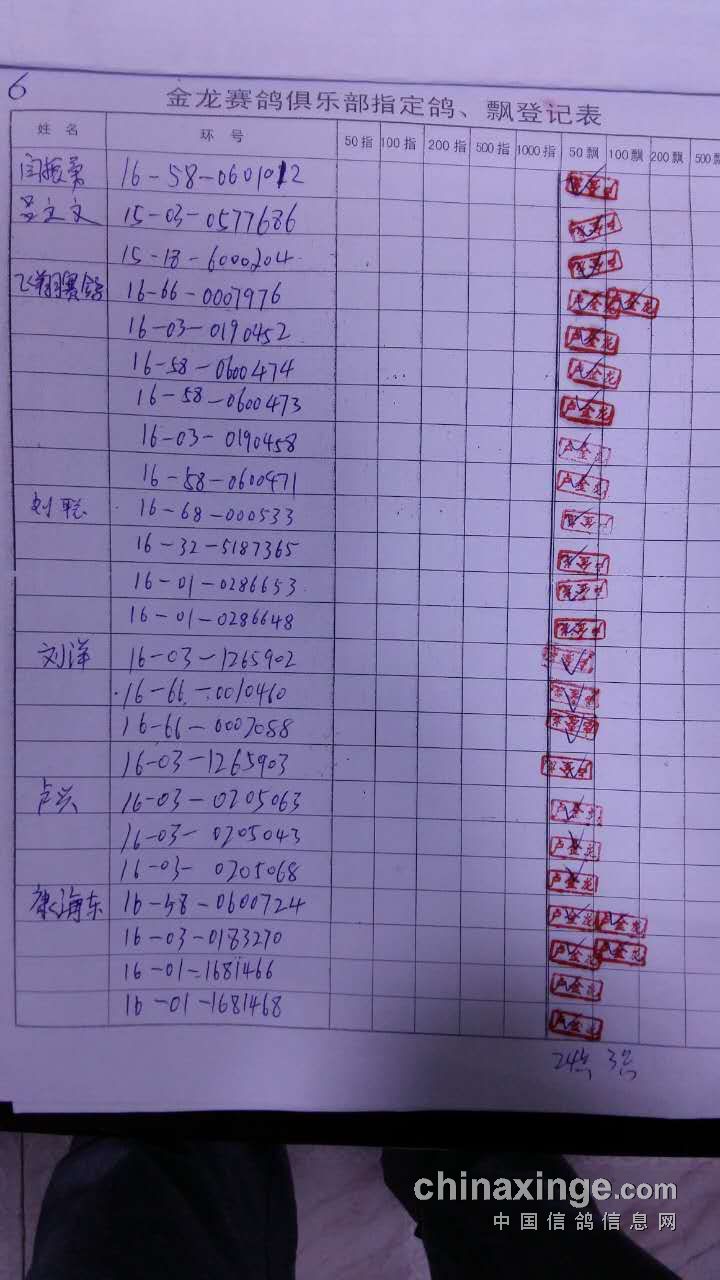 6
金龙赛鸽俱乐部指定鸽、飘登记表
姓 名 环 号 50指 100指 200指 500指 1000指 50飘 100飘 200飘 500飘
闫振勇 16-58-0601012
立文 15-03-0577686
15-18-6000204
飞翔赛鸽 16-66-0007976 卢金龙 卢金龙
16-03-0190452 卢金龙
16-58-0600474 卢金龙
16-58-0600473 卢金龙
16-03-0190458 卢金龙
16-58-0600471 卢金龙
刘聪 16-68-000533
16-32-5187365
16-01-0286653
16-01-0286648
刘洋 16-03-1265902
16-66-0010460
16-66-0007088
16-03-1265903
卢兴 16-03-0205063 卢金龙
16-03-0205043 卢金龙
16-03-0205068 卢金龙
康海东 16-58-0600724 卢金龙 卢金龙
16-03-0183270 卢金龙 卢金龙
16-01-1681466 卢金龙
16-01-1681468 卢金龙
24 3
chinaxinge.com
中国信鸽信息网